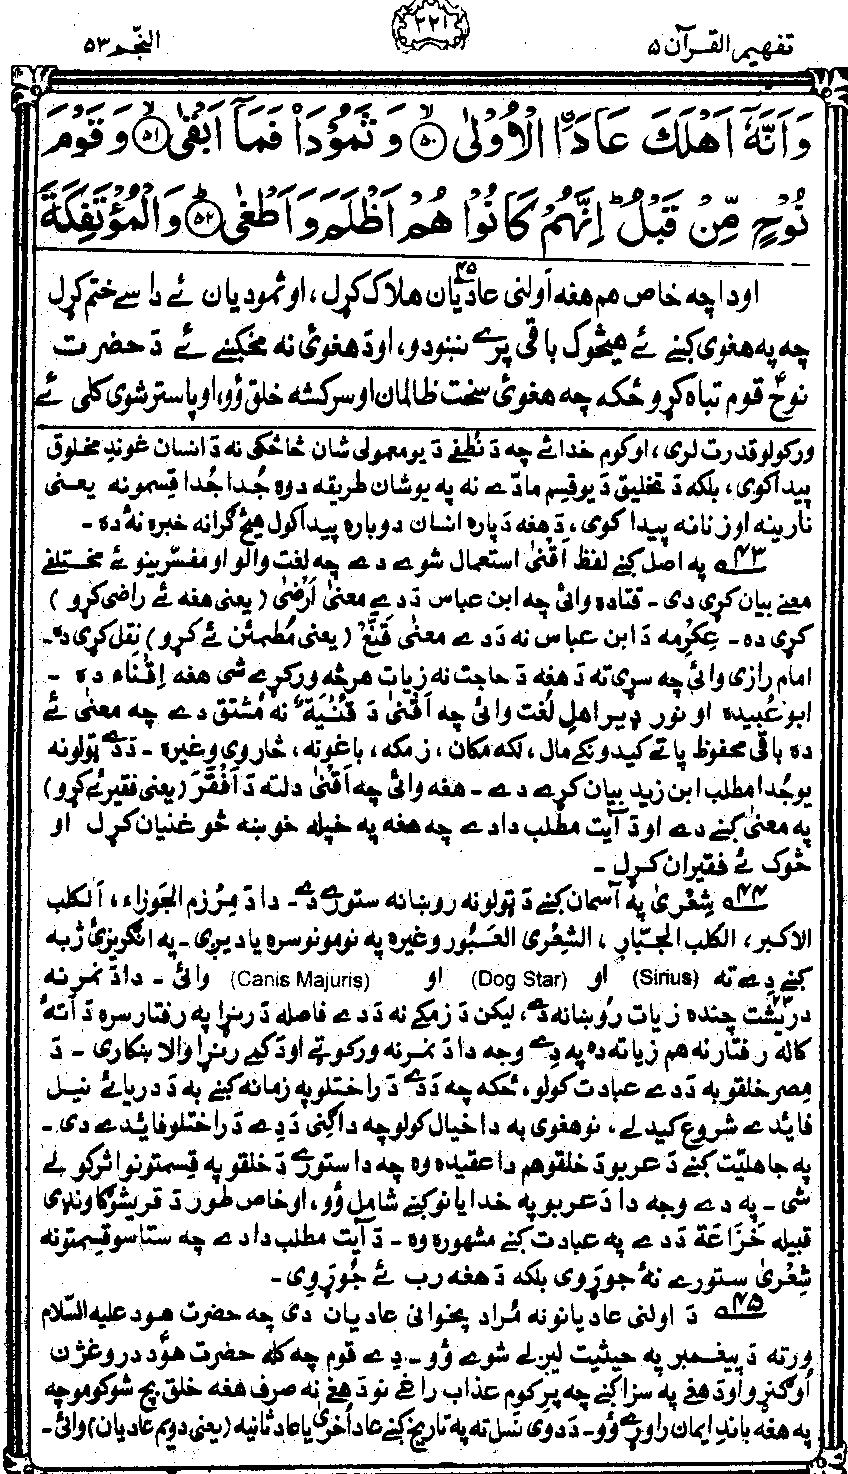 تفهيم القرآن ۵
۲۲۱
النّجم ۵۳
وَاَنَّهٗٓ اَهْلَكَ عَادَاۨ الْاُوْلٰى ﴿۵۰﴾ وَثَمُوْدَا۟ فَمَآ اَبْقٰى ﴿۵۱﴾ وَقَوْمَ
نُوْحٍ مِّنْ قَبْلُ ؕ اِنَّهُمْ كَانُوْا هُمْ اَظْلَمَ وَاَطْغٰى ﴿۵۲﴾ وَالْمُؤْتَفِكَةَ
اودا چه خاص هم هغه اَولني عاديان ۴۵ هلاک کړل، او ثموديان ئے داسے ختم کړل
چه په هغوی کښے ئے هيڅوک باقی پرے نښودو، او دَ هغوئ نه مخکښے ئے دَ حضرت
نوحؑ قوم تباه کړو ځکه چه هغوئ سخت ظالمان او سرکشه خلق وُو، او پاسترشوی کلی ئے
ورکولو قدرت لری، او کوم خدائے چه دَ نُطفے دَ يو معمولی شان څاڅکی نه دَ انسان غوندے مخلوق
پيدا کوی، بلکه دَ تخليق دَ يو قِسم مادّے نه په يو شان طريقه دوه جُدا جُدا قِسمونه يعنی
نارينه او زنانه پيدا کوی، دَ هغه دَپاره انسان دوباره پيدا کول هيڅ ګرانه خبره نهٔ ده ـ
۴۳ په اصل کښے لفظ اَقْنٰى استعمال شوے دے چه لغت والو او مفسّرينو ئے مختلفے
معنے بيان کړی دی ـ قتاده وائی چه ابن عباس دَ دے معنیٰ اَرْضٰى (يعنی هغه ئے راضی کړو)
کړی ده ـ عِکرمه دَ ابن عباس نه دَ دے معنی قَنَّعَ (يعنی مُطمئن ئے کړو) نقل کړی ده ـ
امام رازی وائی چه سړی ته دَ هغه دَ حاجت نه زيات هرڅه ورکړے شی هغه اِقْنَاء ده ـ
ابو عُبيده او نور ډير اهلِ لُغت وائی چه اَقْنٰى دَ قُنْيَة نه مُشتق دے چه معنیٰ ئے
ده باقی محفوظ پاتے کيدونکے مال، لکه مکان، زمکه، باغونه، څاروی وغيره ـ دَ دے ټولونه
يو جُدا مطلب ابن زيد بيان کړے دے ـ هغه وائی چه اَقْنٰى دلته دَ اَفْقَرَ (يعنی فقير ئے کړو)
په معنیٰ کښے دے او دَ آيت مطلب دا دے چه هغه په خپله خوښه څوغنيان کړل او
څوک ئے فقيران کړل ـ
۴۴ شِعْرىٰ په آسمان کښے دَ ټولونه روښانه ستورے دے ـ دا دَ مِرْزم الجَوزاء، اَلکلب
الاکبر، الکلب الجبّار، الشِعْرى العَبُور وغيره په نومونو سره ياديږی ـ په انګريزئ ژبه
کښے دے ته (Sirius) او (Dog Star) او (Canis Majuris) وائی ـ دا دَ نمر نه
درېشت ۲۳ چنده زيات رُوښانه دے، ليکن دَ زمکے نه دَ دے فاصله دَ رڼړا په رفتار سره دَ اَتهٔ
کاله رفتار نه هم زياته ده په دے وجه دا دَ نمر نه ورکوټے او دَ کمے رڼړا والا ښکاری ـ دَ
مِصر خلقو به دَ دے عبادت کولو، ځکه چه دَ دے دَ راختلو په زمانه کښے به دَ دريائے نيل
فائدے شروع کيدلے، نو هغوی به دا خيال کولو چه دا ګنی دَ دے دَ راختلو فائدے دی ـ
په جاهليّت کښے دَ عربو دَ خلقو هم دا عقيده وه چه دا ستورے دَ خلقو په قسمتونو اثر کولے
شی ـ په دے وجه دا دَ عربو په خدايانو کښے شامل وُو، او خاص طور دَ قريشو ګاونډی
قبيله خُزَاعَة دَ دے په عبادت کښے مشهوره وه ـ دَ آيت مطلب دا دے چه ستاسو قِسمتونه
شِعْرىٰ ستورے نهٔ جوړوی بلکه دَ هغه رب ئے جُوړوی ـ
۴۵ دَ اولنی عاديانو نه مُراد پخوانی عاديان دی چه حضرت هود عليه السّلام
ورته دَ پيغمبر په حيثيت ليږلے شوے وُو ـ دے قوم چه کله حضرت هوؑد دروغژن
اُوګنړو او دَ هغے په سزا کښے چه پرے کوم عذاب راغے نو دَ هغے نه صرف هغه خلق بچ شو کومو چه
په هغهٔ باندے ايمان راوړے وُو ـ دَ دوی نسل ته په تاريخ کښے عادِ اُخرٰى يا عادِ ثانيه (يعنی دويم عاديان) وائی ـ